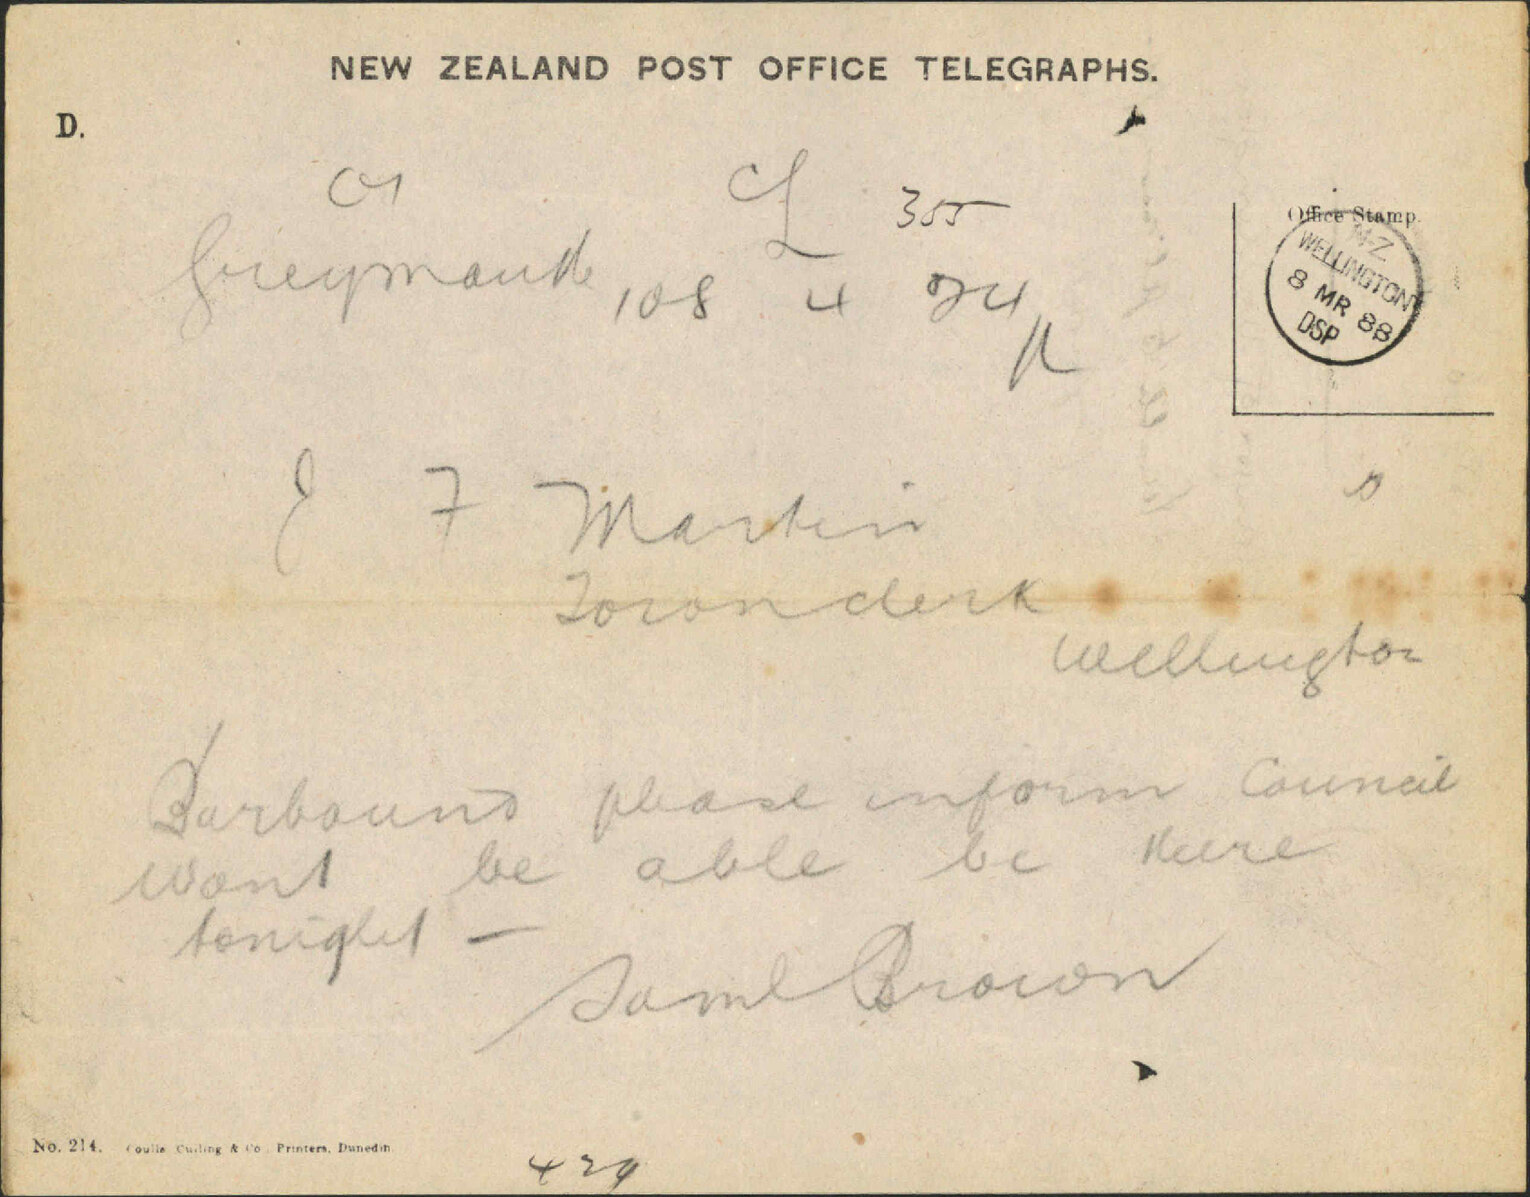 NEW ZEALAND POST OFFICE TELEGRAPHS.
D.
355
Greymouth 108 4
Office Stamp.
N.Z
WELLINGTON
8 MR 88
DSP
J F Martin
Town clerk
Wellington
Barbound please inform Council
wont be able be there
tonight —
Saml Brown
No. 214. Coulls Culling & Co. Printers, Dunedin.
429